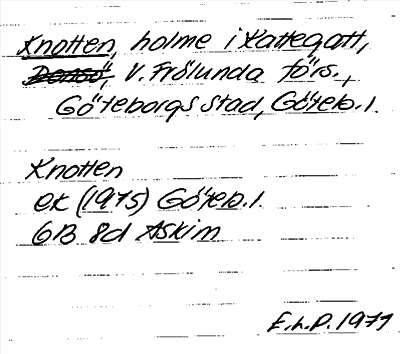 Knotten, holme i Kattegatt,
Densö, V. Frölunda förs.,
Göteborgs stad, Göteb. l.
Knotten
ek (1975) Göteb. l.
6B 8d Askim
E.L.P. 1977